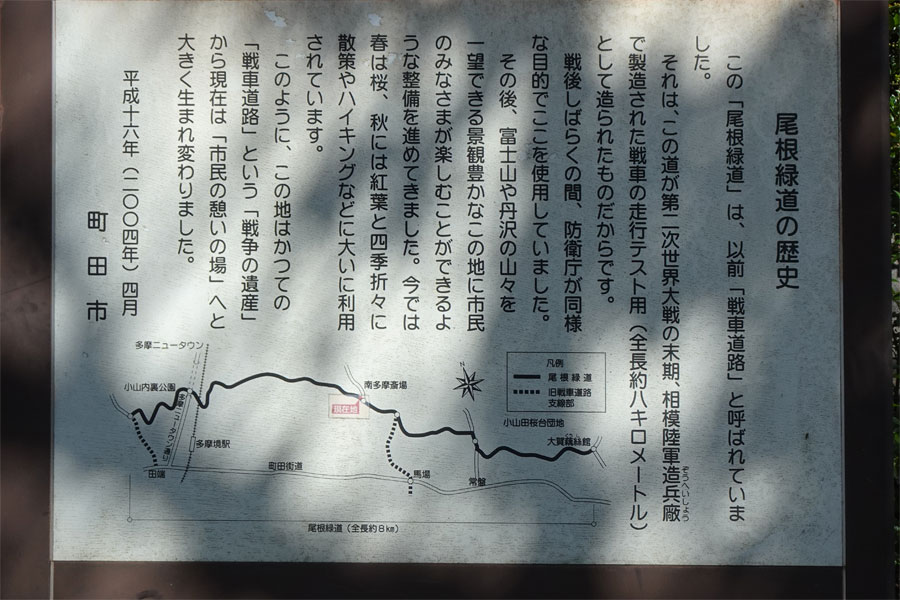 尾根緑道の歴史
この「尾根緑道」は、以前「戦車道路」と呼ばれていま
した。
それは、この道が第二次世界大戦の末期、相模陸軍造兵廠
ぞうへいしょう
で製造された戦車の走行テスト用（全長約八キロメートル）
として造られたものだからです。
戦後しばらくの間、防衛庁が同様
な目的でここを使用していました。
その後、富士山や丹沢の山々を
一望できる景観豊かなこの地に市民
のみなさまが楽しむことができるよ
うな整備を進めてきました。今では
春は桜、秋には紅葉と四季折々に
散策やハイキングなどに大いに利用
されています。
このように、この地はかつての
「戦車道路」という「戦争の遺産」
から現在は「市民の憩いの場」へと
大きく生まれ変わりました。
平成十六年（二〇〇四年）四月
町田市
凡例
尾根緑道
旧戦車道路
支線部
多摩ニュータウン
小山内裏公園
多摩ニュータウン通り
多摩境駅
田端
町田街道
南多摩斎場
現在地
馬場
常盤
小山田桜台団地
大賀藕絲館
尾根緑道（全長約8km）